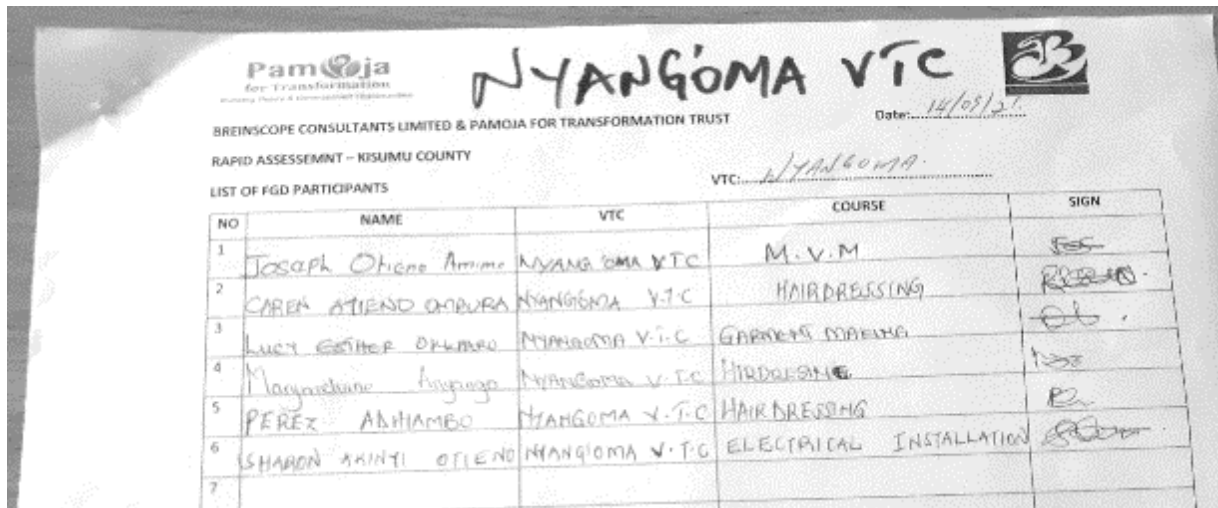 Pamoja
for Transformation
NYANG'OMA VTC
Date: 14/05/21
BREINSCOPE CONSULTANTS LIMITED & PAMOJA FOR TRANSFORMATION TRUST
RAPID ASSESSEMNT – KISUMU COUNTY
VTC: NYANGOMA.
LIST OF FGD PARTICIPANTS
NO NAME VTC COURSE SIGN
1 Joseph Otieno NYANG'OMA VTC M.V.M
2 CAREN ATIENO NYANGÓMA V.T.C HAIRDRESSING
3 LUCY ESTHER NYANGOMA V.T.C GARMENT
4 Anyango NYANGOMA V.T.C
5 PEREZ ADHIAMBO NYANGOMA V.T.C HAIRDRESSING
6 SHARON AKINYI OTIENO NYANG'OMA V.T.C ELECTRICAL INSTALLATION
7